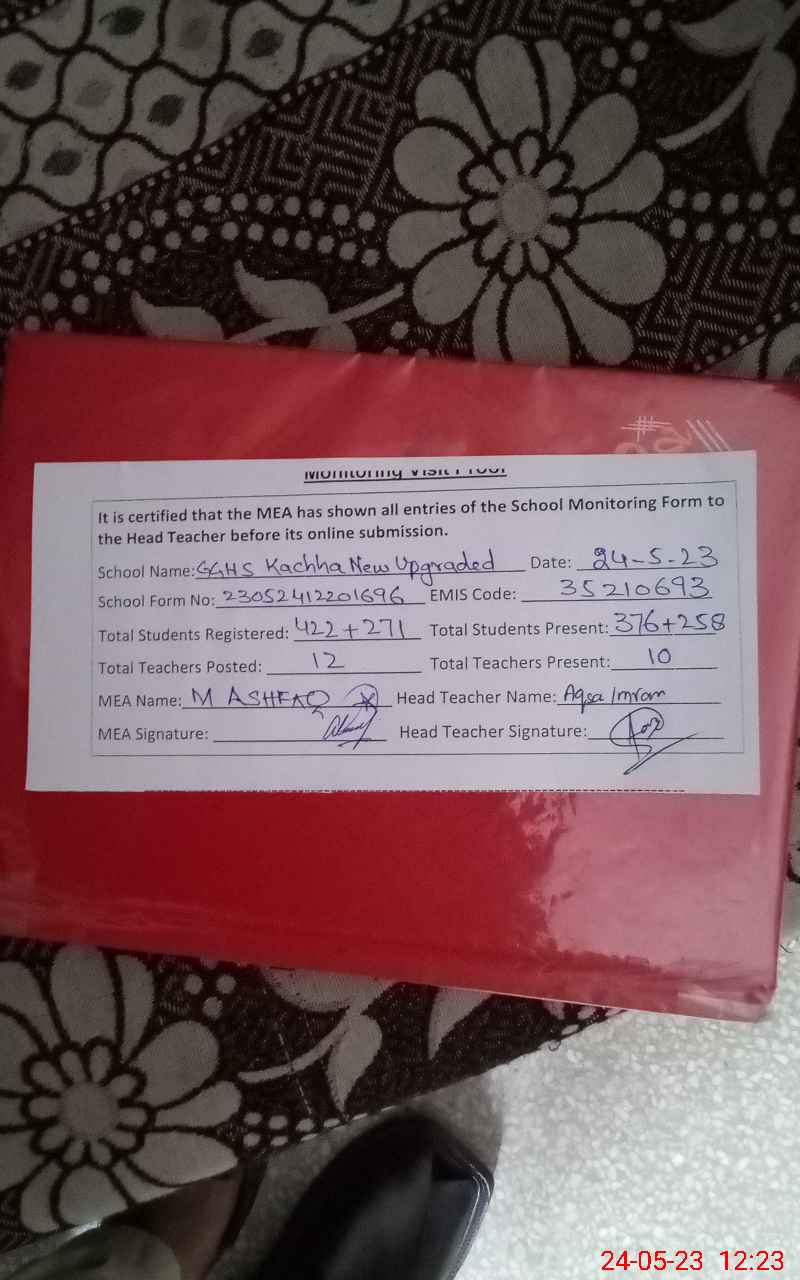 Monitoring Visit Proof
It is certified that the MEA has shown all entries of the School Monitoring Form to
the Head Teacher before its online submission.
School Name: GGHS Kachha New Upgraded Date: 24-5-23
School Form No: 23052412201696 EMIS Code: 35210693
Total Students Registered: 422+271 Total Students Present: 376+258
Total Teachers Posted: 12 Total Teachers Present: 10
MEA Name: M ASHFAQ Head Teacher Name: Aqsa Imran
MEA Signature: Head Teacher Signature:
24-05-23 12:23